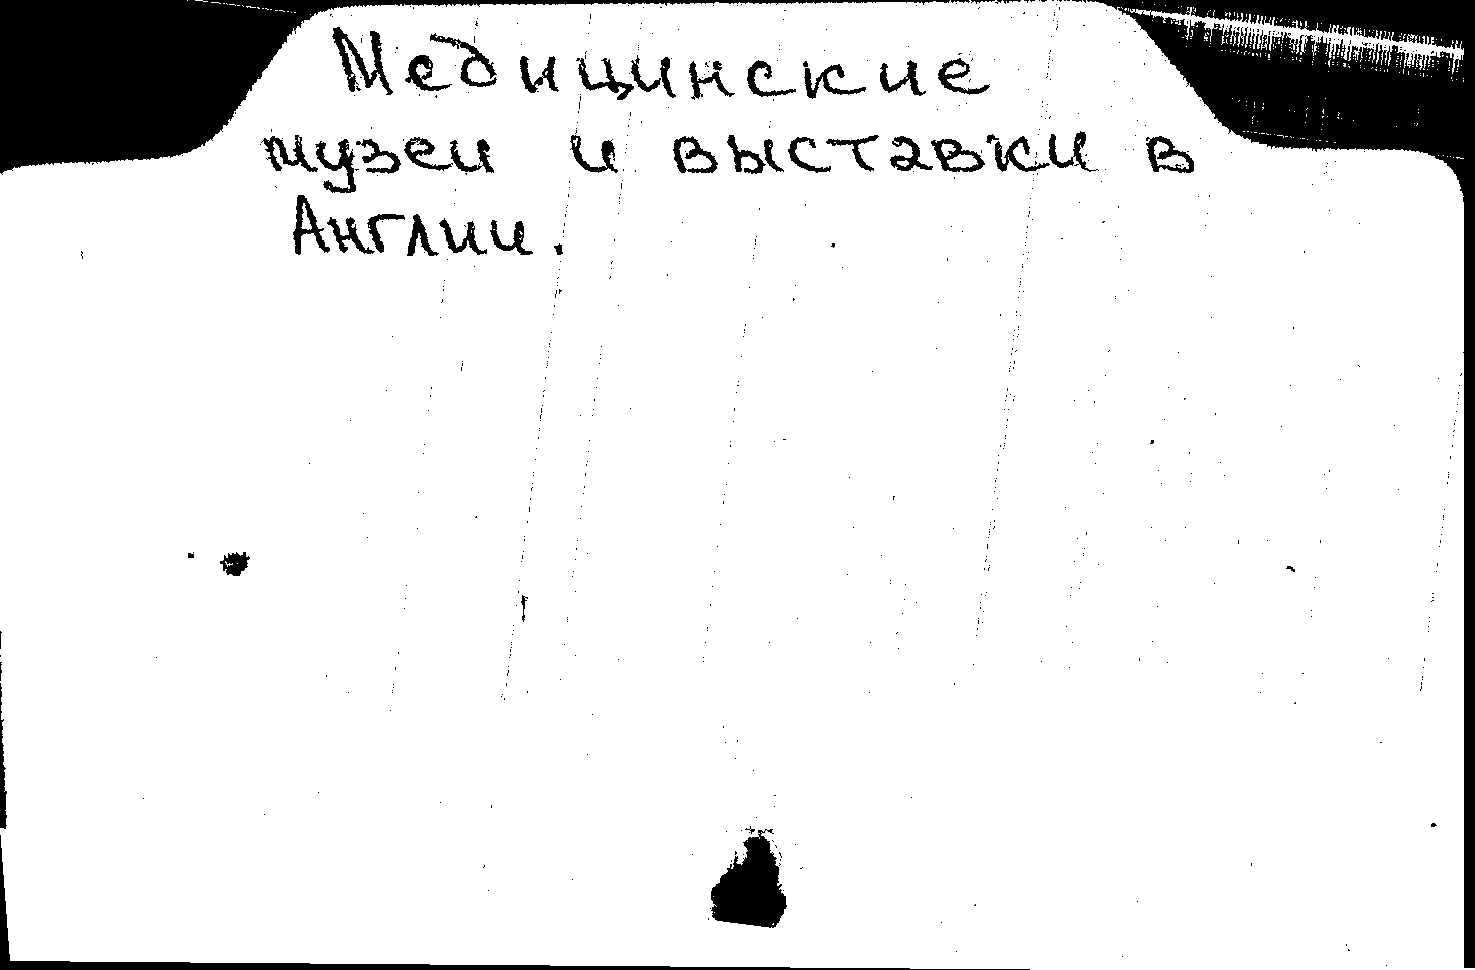 Медицинские
музеи и выставки в
Англии.